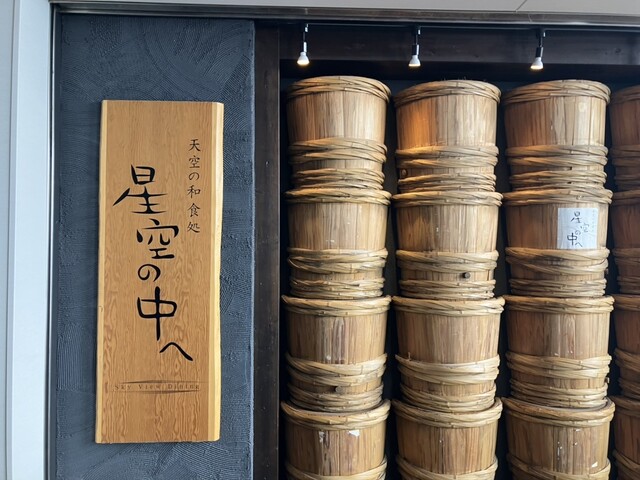 天空の和食処
星空の中へ
SKY VIEW DINING
星空の中へ